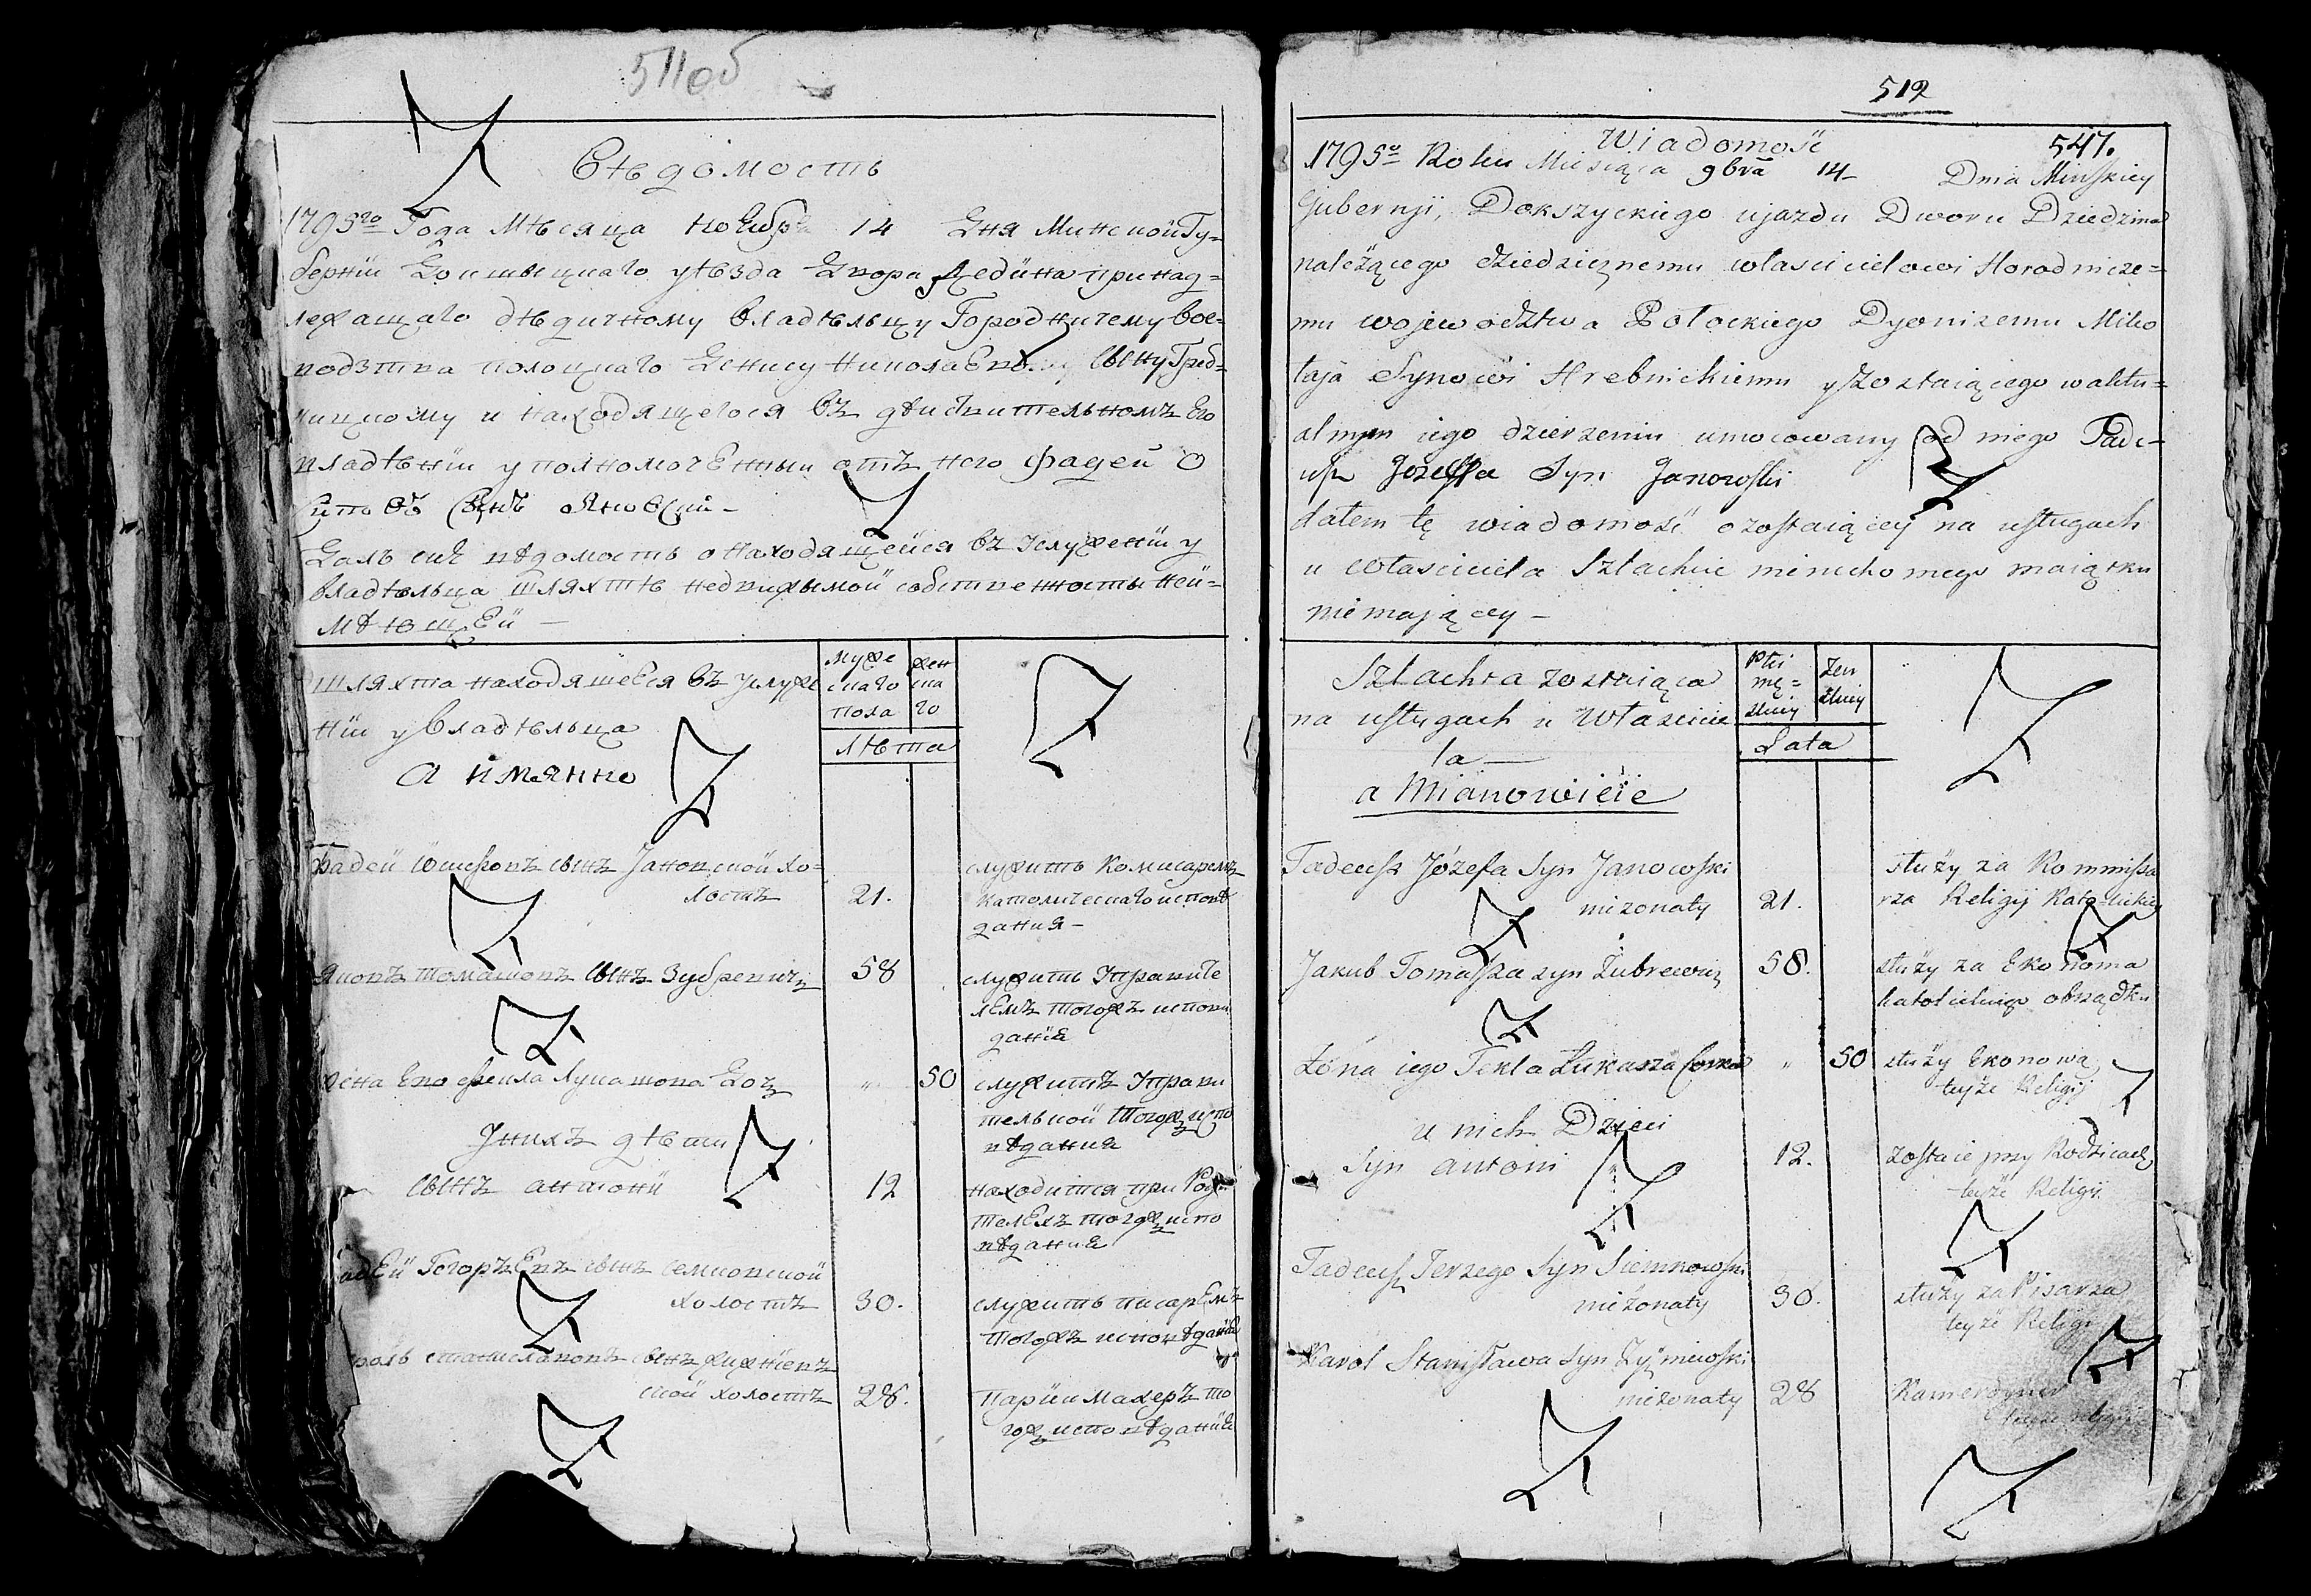 511об
Вѣдомость
1795го Года Мѣсяца Ноебра 14 Дня Минской Гу=
бернїи Докшыцкаго уѣзда Двора Дедина принад=
лежащаго дѣдичному владѣльцу Городничему вое-
водзтва полоцкаго Денису Николаеву сыну Греб-
ницкому и находящегося въ дѣиствительномъ Его
владѣнїи уполномоченный отъ него Фадей О
сиповъ сынъ Яновский -
Далъ сию вѣдомость о находящейся въ услуженїи у
владѣльца шляхтѣ недвижымой собственности неи=
мѣющей -
шляхта находящеся въ услуже
нїи у владѣльца
а имянно
Муже
скаго
пола
жен
ска
го
лѣта
Фадей Юзефовъ сынъ Яновской хо=
лостъ 21. служитъ Комисаремъ
католическаго исповѣ
дания -
Яковъ Томашовъ сынъ Зубревичъ 58 служитъ Управите
лемъ тогожъ испови
данїя
жена Его Фекла Лукашова Доч " 50 служитъ Управи
тельной тогожъ испо
вѣдания
У нихъ дѣти
сынъ антонїй 12 находится при Роди
телехъ тогожъ испо
вѣдания
адей Егоръевъ сынъ Семковской
холостъ 30. служитъ писаремъ
тогожъ исповѣданїя
роль станиславовъ сынъ Жижневъ
ской холостъ 28. парикмахеръ то
гожъ исповѣданїя
512
Wiadomość 547.
1795o Roku Miesiąca 9bra 14 - Dnia Minskiey
Gubernji, Dokszyckiego ujazdu Dworu Dziedzina
należącego dziedzicznemu włascicielowi Horodnicze=
mu wojewodztwa Połockiego Dyonizemu Miko
łaja Synowi Hrebnickiemu y zostaiącego w aktu=
alnym iego dzierzeniu umocowany od niego Tade-
usz Jozeffa Syn Janowski
dałem tę wiadomość o zostaiącey na usługach
u własciciela Szlachcie nieruchomego maiątku
niemającey -
Szlachta zostaiąca
na usługach u Własciciе
la -
a Mianowicie
Płci
mę=
skiey
żen
skiey
Lata
Tadeusz Józefa Syn Janowski
nieżonaty 21. służy za Kommissa
rza Religij Kato-lickiey
Jakub Tomasza syn Zubrewicz 58. służy za Ekonoma
katolickiego obrządku
Żona iego Tekla Łukasza Corka " 50 służy Ekonomą
teyże Religij
u nich Dzieci
Syn antoni 12. zostaie przy Rodzicach
teyże Religij.
Tadeusz Jerzego Syn Siemkowski
nieżonaty 30. służy za Pisarza
teyże Religij
Karol Stanisława Syn Żyżniewski
nieżonaty 28 Kamerdyner
teyże religij